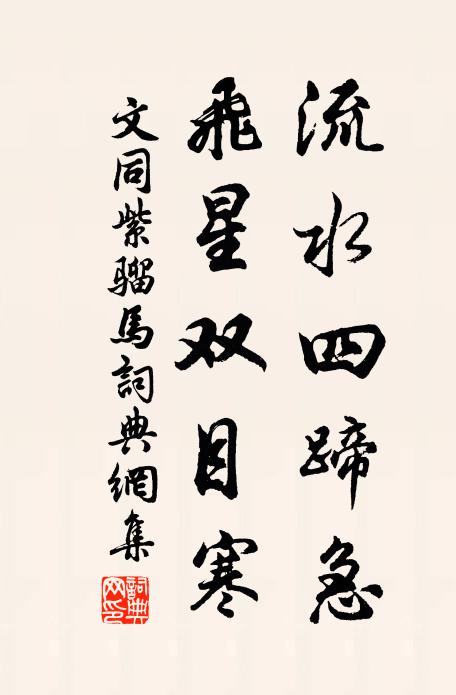 流水四蹄急
飛星双目寒
文同紫騮馬詞典網集
詞典网印